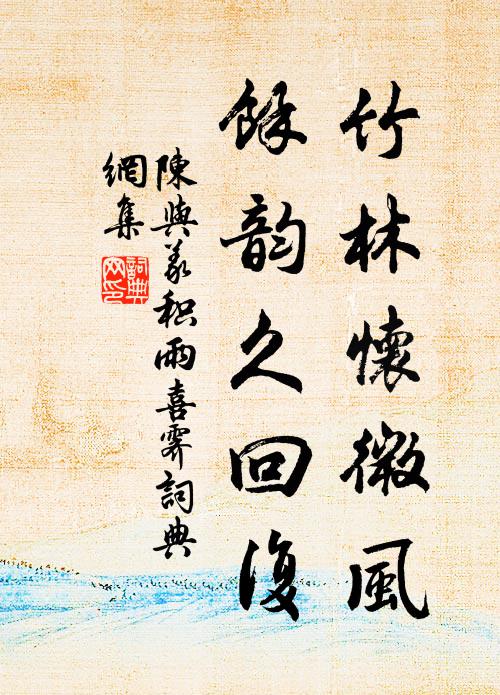 竹林懷微風
餘韵久回復
陳與義積雨喜霽詞典
網集
詞典
网印